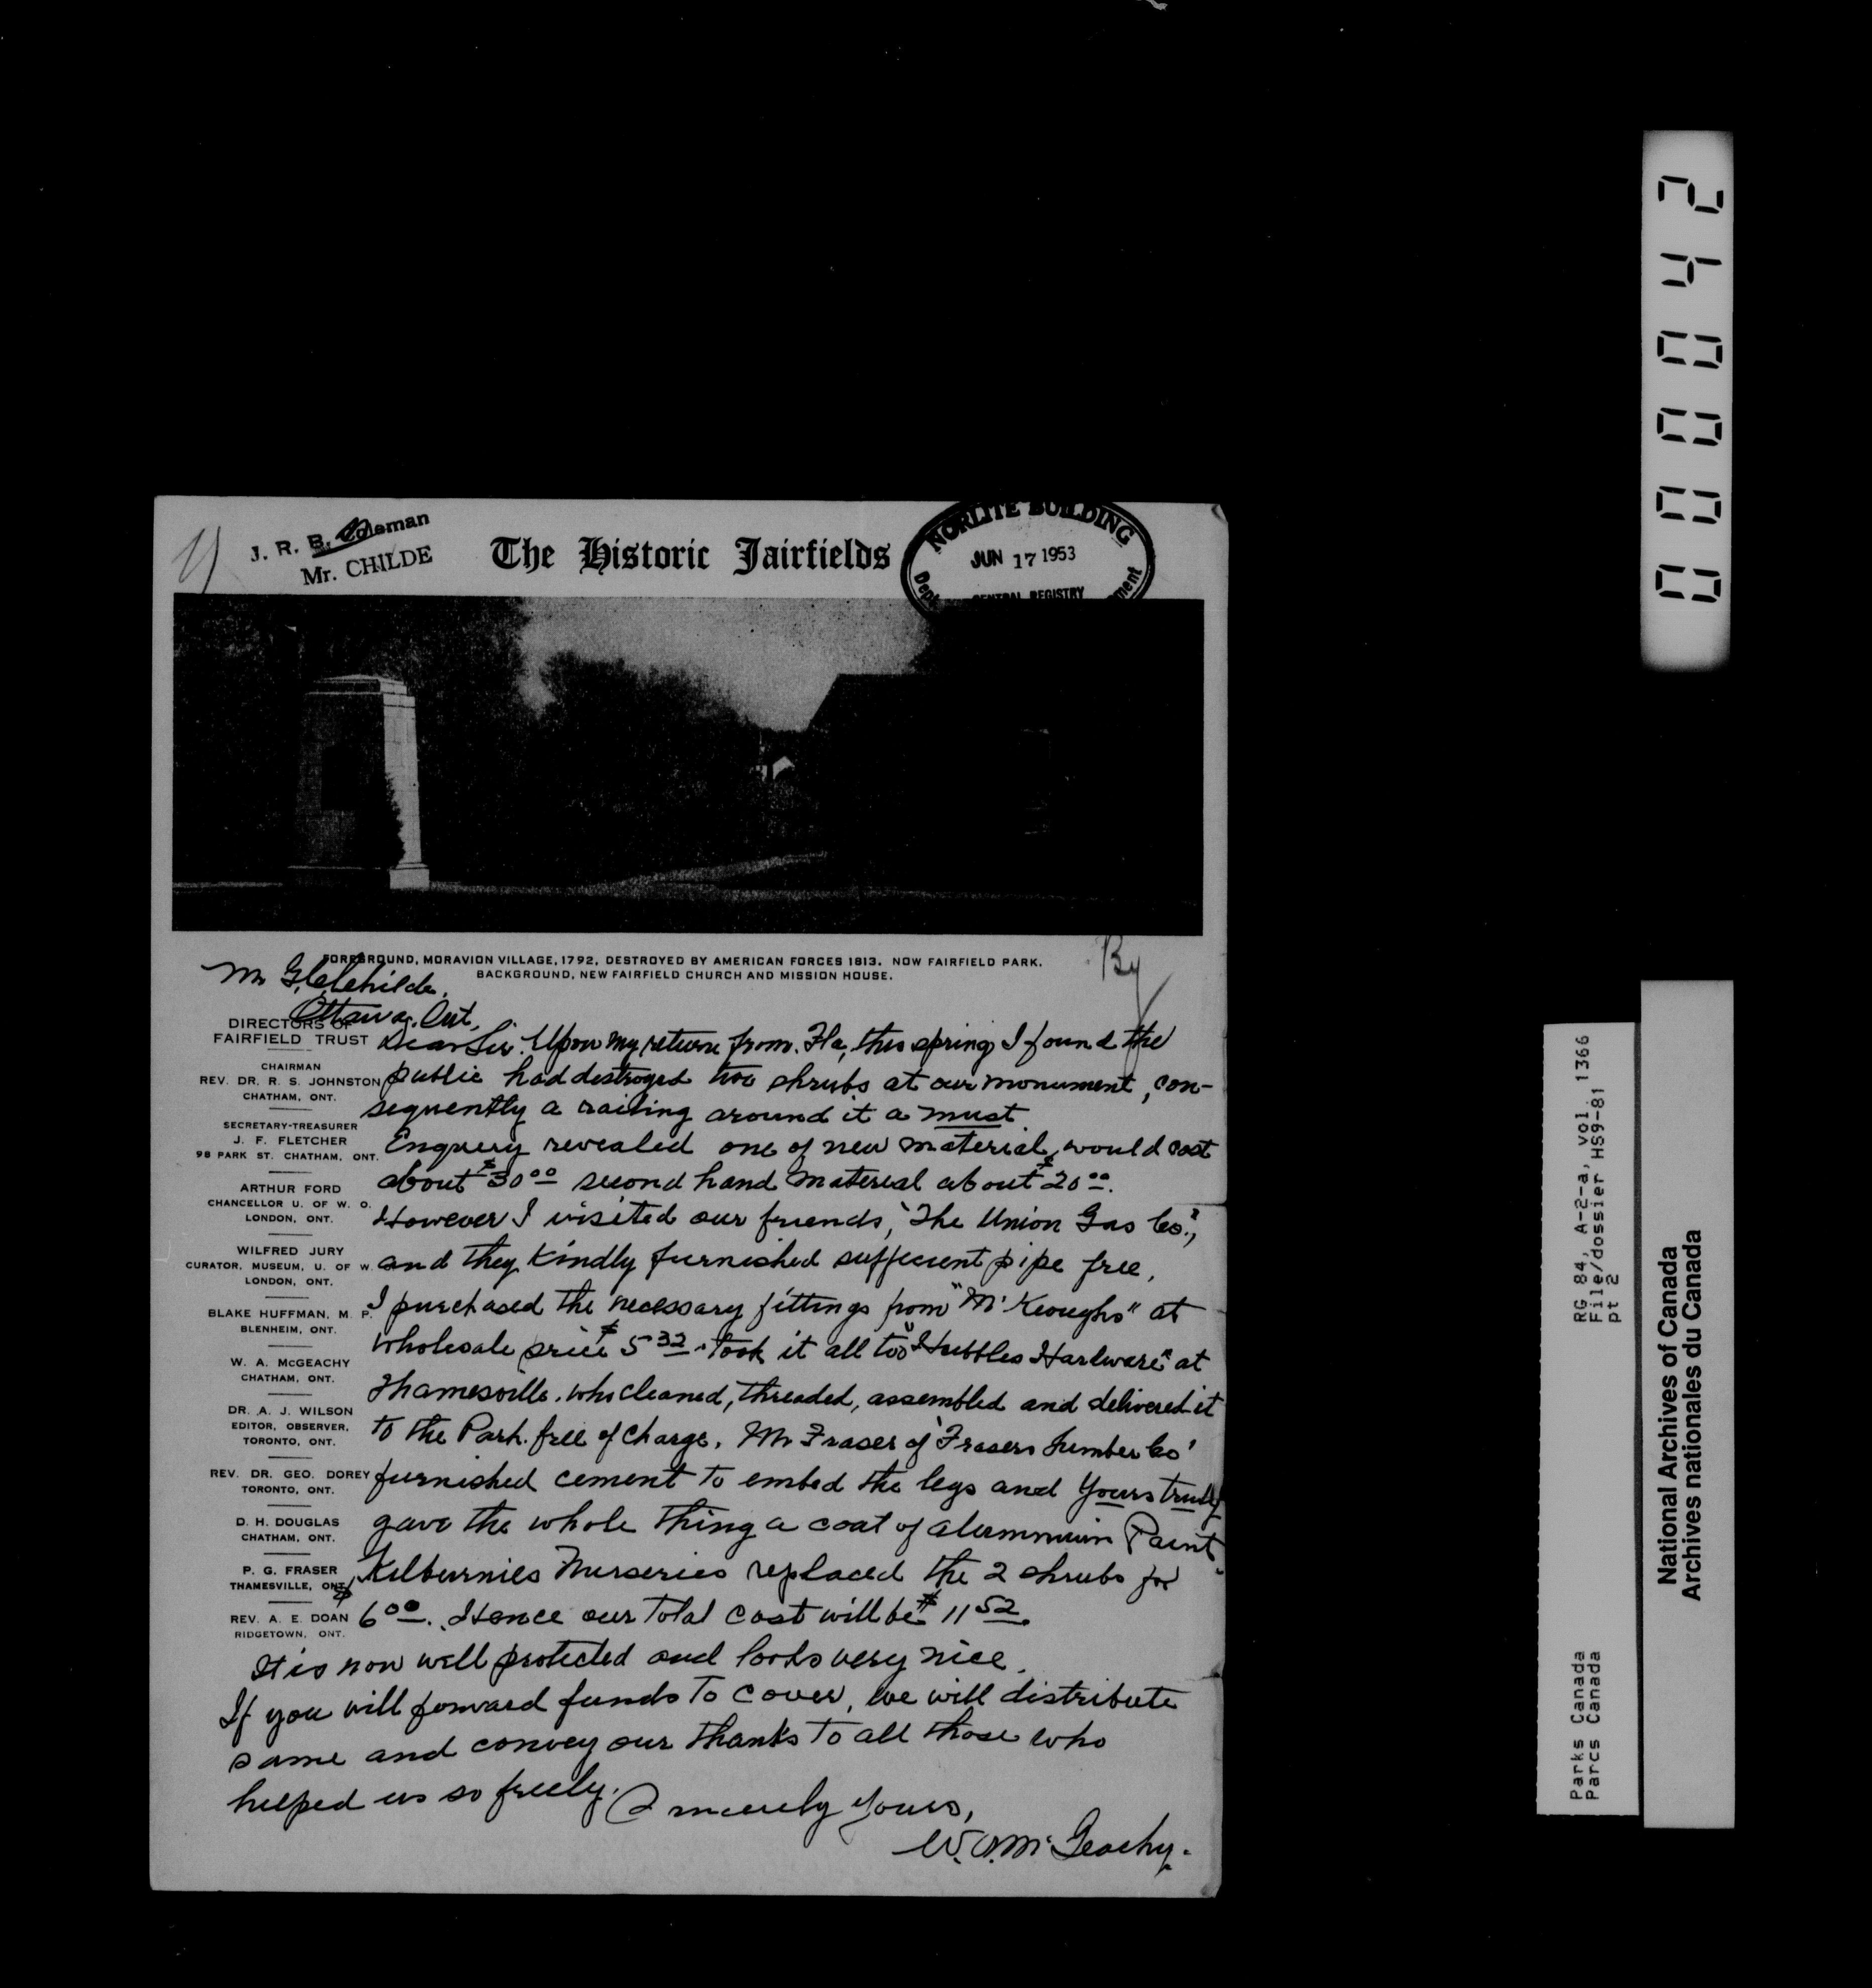 J. R. B. Coleman
Mr. CHILDE
The Historic Fairfields
NORLITE BUILDING
JUN 17 1953
CENTRAL REGISTRY
FOREGROUND, MORAVION VILLAGE, 1792, DESTROYED BY AMERICAN FORCES 1813. NOW FAIRFIELD PARK.
BACKGROUND, NEW FAIRFIELD CHURCH AND MISSION HOUSE.
By
Mr Childe,
Ottawa, Ont,
Dear Sir. Upon my return from Fla, this spring I found the
public had destroyed two shrubs at our monument, con-
sequently a railing around it a must
Enquery revealed one of new material, would cost
about $30 00 second hand material about $20 00.
However I visited our friends, "The Union Gas Co.",
and they kindly furnished suffecient pipe free,
I purchased the necessary fittings from "Mc Keoughs" at
wholesale price $5 32. Took it all too "Hubbles Hardware" at
Thamesville. who cleaned, threaded, assembled and delivered it
to the Park. free of charge. Mr Fraser of 'Frasers Lumber Co'
furnished cement to embed the legs and Yours truly
gave the whole thing a coat of alumnuim Paint.
Kilburnies Nurseries replaced the 2 shrubs for
$6 00. Hence our total cost will be $11 52.
It is now well protected and looks very nice.
If you will forward funds to cover, we will distribute
same and convey our thanks to all those who
helped us so freely.
Sincerely yours,
W. A. McGeachy.
DIRECTORS OF
FAIRFIELD TRUST
CHAIRMAN
REV. DR. R. S. JOHNSTON
CHATHAM, ONT.
SECRETARY-TREASURER
J. F. FLETCHER
98 PARK ST. CHATHAM, ONT.
ARTHUR FORD
CHANCELLOR U. OF W. O.
LONDON, ONT.
WILFRED JURY
CURATOR, MUSEUM, U. OF W.
LONDON, ONT.
BLAKE HUFFMAN, M. P.
BLENHEIM, ONT.
W. A. McGEACHY
CHATHAM, ONT.
DR. A. J. WILSON
EDITOR, OBSERVER,
TORONTO, ONT.
REV. DR. GEO. DOREY
TORONTO, ONT.
D. H. DOUGLAS
CHATHAM, ONT.
P. G. FRASER
THAMESVILLE, ONT.
REV. A. E. DOAN
RIDGETOWN, ONT.
000042
Parks Canada
Parcs Canada
RG 84, A-2-a, vol. 1366
File/dossier HS9-81
pt 2
National Archives of Canada
Archives nationales du Canada